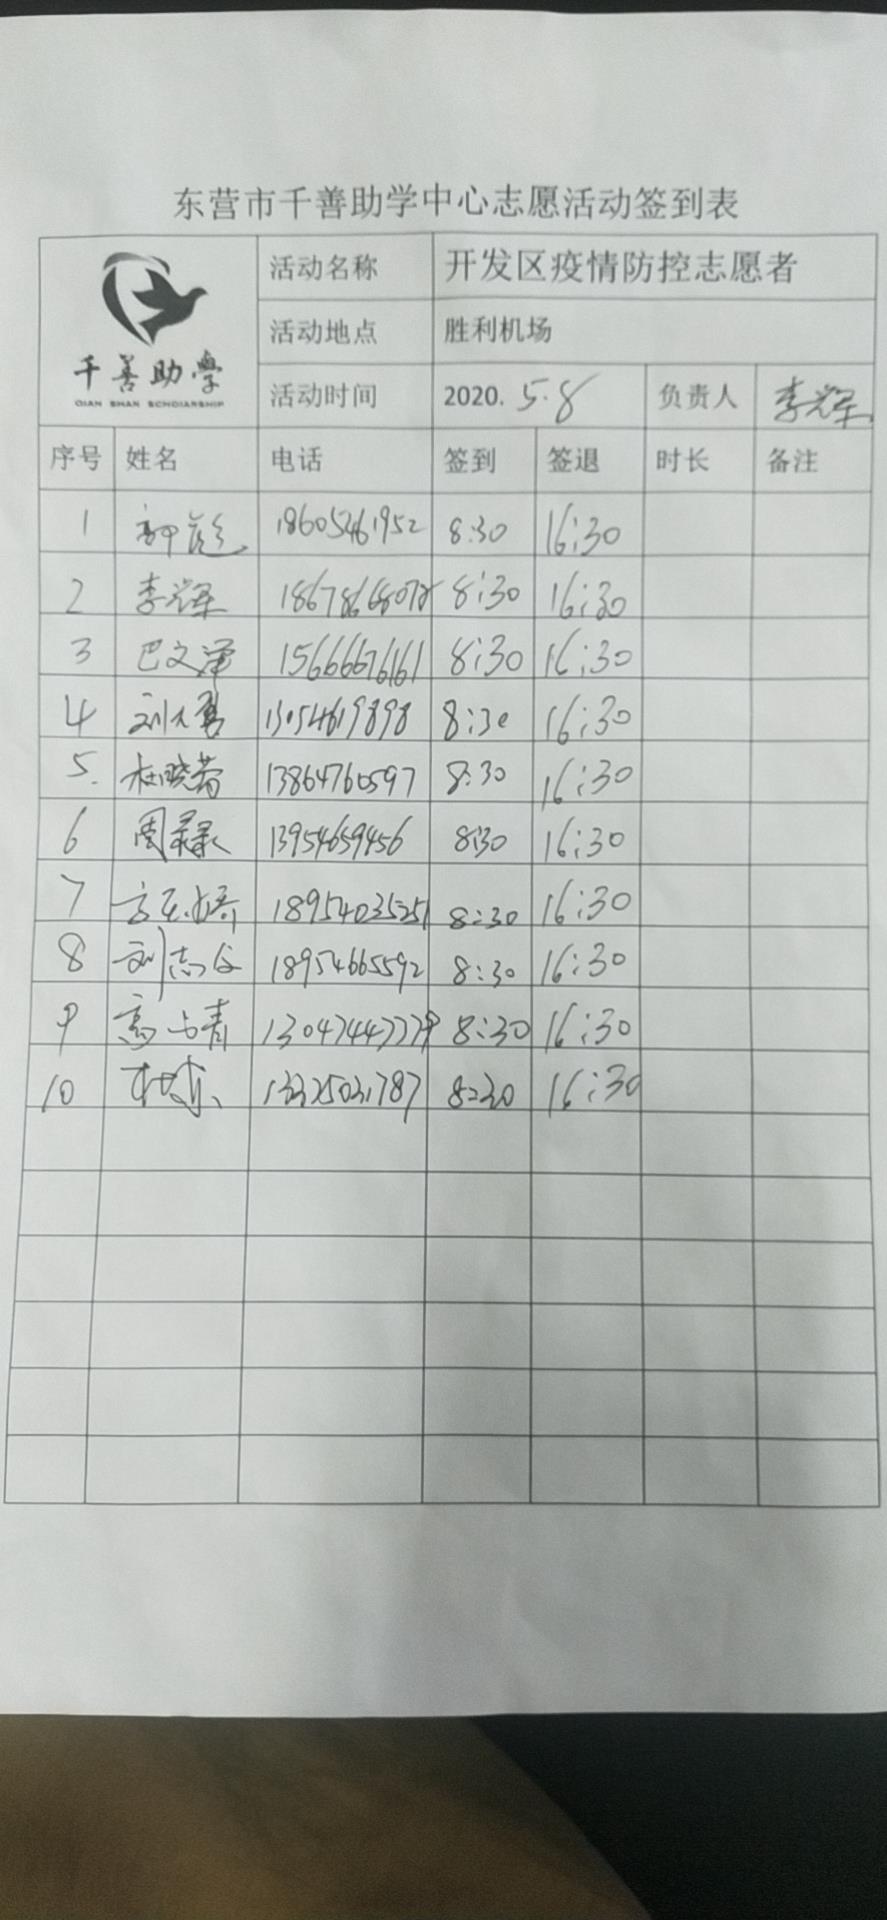 东营市千善助学中心志愿活动签到表
千善助學
QIAN SHAN SCHOLARSHIP
活动名称 开发区疫情防控志愿者
活动地点 胜利机场
活动时间 2020. 5.8 负责人 李辉
序号 姓名 电话 签到 签退 时长 备注
1 18605461952 8:30 16:30
2 李辉 8:30 16:30
3 巴文泽 15666676161 8:30 16:30
4 13054619898 8:30 16:30
5. 杜晓菊 13864760597 8:30 16:30
6 周 13954659456 8:30 16:30
7 18954035251 8:30 16:30
8 刘志 18954665592 8:30 16:30
9 高 青 13047447779 8:30 16:30
10 13325031787 8:30 16:30